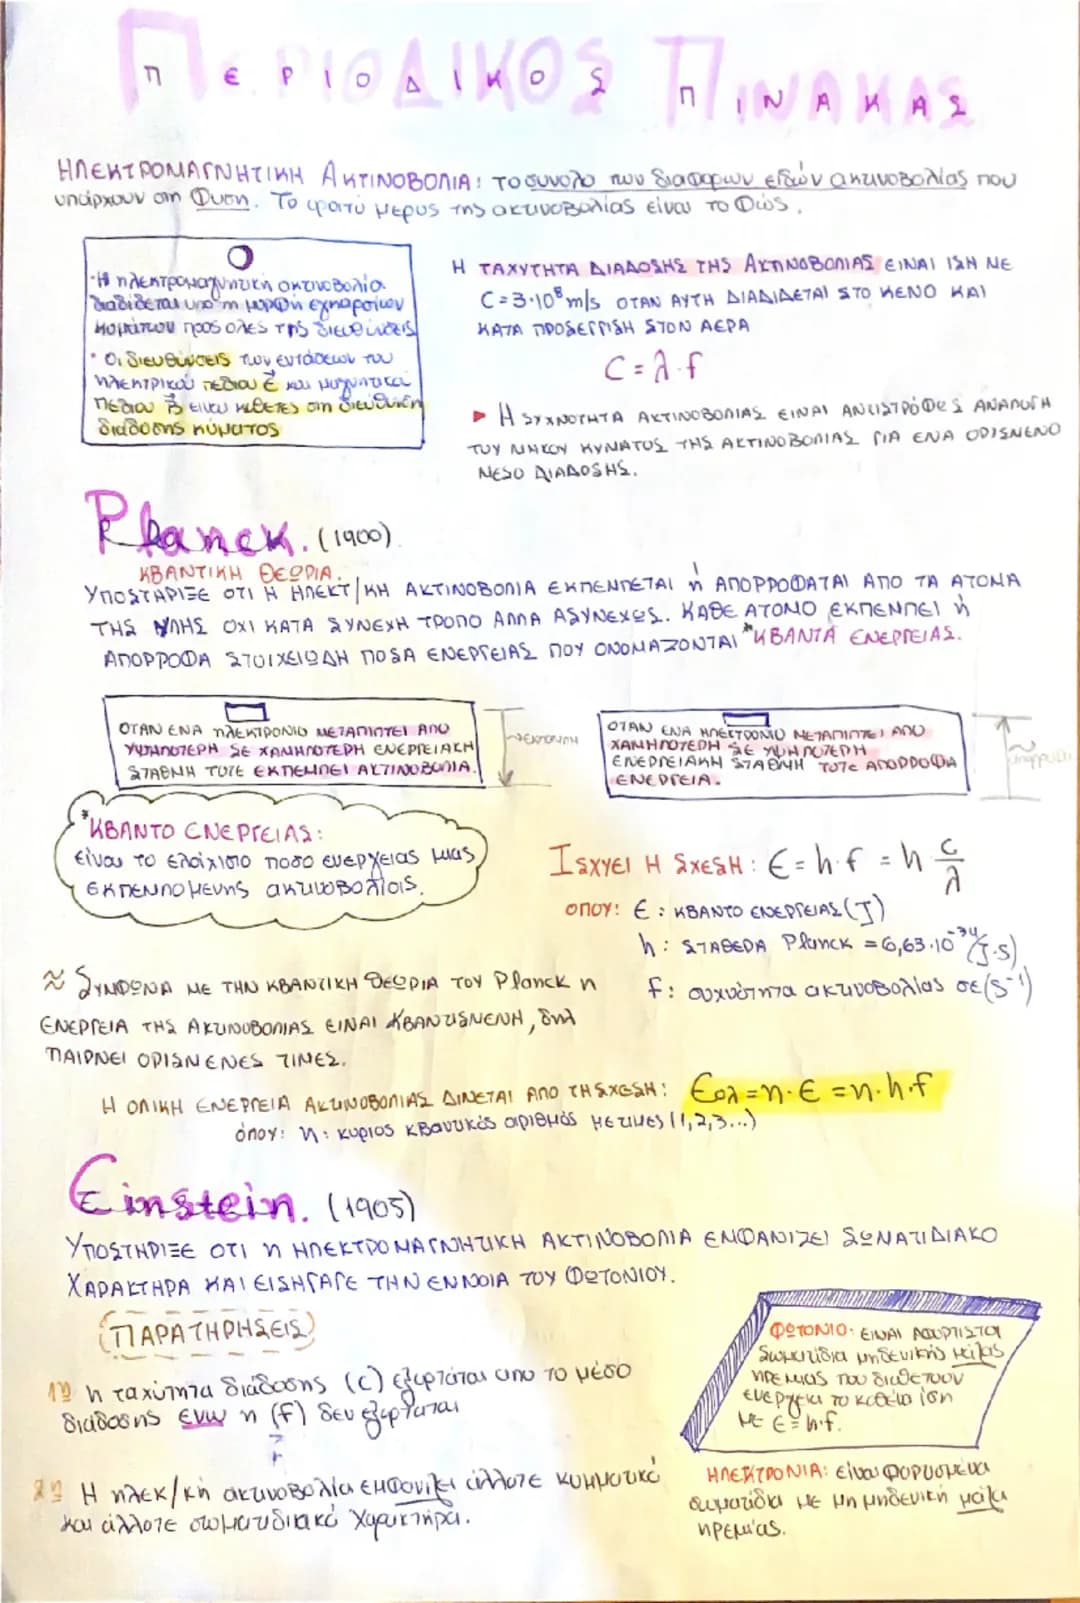 ΠΕΡΙΟΔΙΚΟΣ ΠΙΝΑΚΑΣ
ΗΛΕΚΤΡΟΜΑΓΝΗΤΙΚΗ ΑΚΤΙΝΟΒΟΛΙΑ: το σύνολο των διαφορων ειδών ακτινοβολίας που
υπάρχουν στη Φυση. Το ορατό μερος της ακτινοβολίας είναι το Φώς.
• Η ηλεκτρομαγνητική ακτινοβολία
διαδίδεται υπο τη μορφή εγκαρσίων
κυμάτων προς ολες της διευθύνσεις
• Οι διευθύνσεις των εντάσεων του
ηλεκτρικού πεδίου Ε και μαγνητικού
πεδίου Β είναι κάθετες στη διευθυνση
διάδοσης κύματος
Η ΤΑΧΥΤΗΤΑ ΔΙΑΔΟΣΗΣ ΤΗΣ ΑΚΤΙΝΟΒΟΛΙΑΣ ΕΙΝΑΙ ΙΣΗ ΜΕ
C=3·10⁸ m/s ΟΤΑΝ ΑΥΤΗ ΔΙΑΔΙΔΕΤΑΙ ΣΤΟ ΚΕΝΟ ΚΑΙ
ΚΑΤΑ ΠΡΟΣΕΓΓΙΣΗ ΣΤΟΝ ΑΕΡΑ
C = λ·f
▸ Η ΣΥΧΝΟΤΗΤΑ ΑΚΤΙΝΟΒΟΛΙΑΣ ΕΙΝΑΙ ΑΝΤΙΣΤΡΟΦΩΣ ΑΝΑΛΟΓΗ
ΤΟΥ ΜΗΚΟΥ ΚΥΜΑΤΟΣ ΤΗΣ ΑΚΤΙΝΟΒΟΛΙΑΣ ΓΙΑ ΕΝΑ ΟΡΙΣΜΕΝΟ
ΜΕΣΟ ΔΙΑΔΟΣΗΣ.
Planck. (1900)
ΚΒΑΝΤΙΚΗ ΘΕΩΡΙΑ:
ΥΠΟΣΤΗΡΙΞΕ ΟΤΙ Η ΗΛΕΚΤ/ΚΗ ΑΚΤΙΝΟΒΟΛΙΑ ΕΚΠΕΜΠΕΤΑΙ ή ΑΠΟΡΡΟΦΑΤΑΙ ΑΠΟ ΤΑ ΑΤΟΜΑ
ΤΗΣ ΥΛΗΣ ΟΧΙ ΚΑΤΑ ΣΥΝΕΧΗ ΤΡΟΠΟ ΑΛΛΑ ΑΣΥΝΕΧΩΣ. ΚΑΘΕ ΑΤΟΜΟ ΕΚΠΕΜΠΕΙ ή
ΑΠΟΡΡΟΦΑ ΣΤΟΙΧΕΙΩΔΗ ΠΟΣΑ ΕΝΕΡΓΕΙΑΣ ΠΟΥ ΟΝΟΜΑΖΟΝΤΑΙ *ΚΒΑΝΤΑ ΕΝΕΡΓΕΙΑΣ.
ΟΤΑΝ ΕΝΑ ηΛΕΚΤΡΟΝΙΟ ΜΕΤΑΠΙΠΤΕΙ ΑΠΟ
ΥΨΗΛΟΤΕΡΗ ΣΕ ΧΑΜΗΛΟΤΕΡΗ ΕΝΕΡΓΕΙΑΚΗ
ΣΤΑΘΜΗ ΤΟΤΕ ΕΚΠΕΜΠΕΙ ΑΚΤΙΝΟΒΟΛΙΑ.
~εκπομπη
ΟΤΑΝ ΕΝΑ ΗΛΕΚΤΡΟΝΙΟ ΜΕΤΑΠΙΠΤΕΙ ΑΠΟ
ΧΑΜΗΛΟΤΕΡΗ ΣΕ ΥΨΗΛΟΤΕΡΗ
ΕΝΕΡΓΕΙΑΚΗ ΣΤΑΘΜΗ ΤΟΤΕ ΑΠΟΡΡΟΦΑ
ΕΝΕΡΓΕΙΑ.
*ΚΒΑΝΤΟ ΕΝΕΡΓΕΙΑΣ:
είναι το ελάχιστο ποσο ενεργειας μιας
εκπεμπομενης ακτινοβολίας.
ΙΣΧΥΕΙ Η ΣΧΕΣΗ: Ε = h·f = h c/λ
ΟΠΟΥ: Ε : ΚΒΑΝΤΟ ΕΝΕΡΓΕΙΑΣ (J)
h : ΣΤΑΘΕΡΑ Planck = 6,63·10⁻³⁴ (J·s)
f : συχνότητα ακτινοβολίας σε (s⁻¹)
≈ ΣΥΜΦΩΝΑ ΜΕ ΤΗΝ ΚΒΑΝΤΙΚΗ ΘΕΩΡΙΑ ΤΟΥ Planck η
ΕΝΕΡΓΕΙΑ ΤΗΣ ΑΚΤΙΝΟΒΟΛΙΑΣ ΕΙΝΑΙ ΚΒΑΝΤΙΣΜΕΝΗ, δηλ
ΠΑΙΡΝΕΙ ΟΡΙΣΜΕΝΕΣ ΤΙΜΕΣ.
Η ΟΛΙΚΗ ΕΝΕΡΓΕΙΑ ΑΚΤΙΝΟΒΟΛΙΑΣ ΔΙΝΕΤΑΙ ΑΠΟ ΤΗ ΣΧΕΣΗ: Εολ = n·Ε = n·h·f
όπου: n : κυριος κβαντικός αριθμός με τιμές (1,2,3...)
Einstein. (1905)
ΥΠΟΣΤΗΡΙΞΕ ΟΤΙ η ΗΛΕΚΤΡΟΜΑΓΝΗΤΙΚΗ ΑΚΤΙΝΟΒΟΛΙΑ ΕΜΦΑΝΙΖΕΙ ΣΩΜΑΤΙΔΙΑΚΟ
ΧΑΡΑΚΤΗΡΑ ΚΑΙ ΕΙΣΗΓΑΓΕ ΤΗΝ ΕΝΝΟΙΑ ΤΟΥ ΦΩΤΟΝΙΟΥ.
ΠΑΡΑΤΗΡΗΣΕΙΣ
1η η ταχύτητα διάδοσης (c) εξαρτάται απο το μέσο
διάδοσης ενω η (f) δεν εξαρταται
2η Η ηλεκ/κή ακτινοβολία εμφανίζει άλλοτε κυμματικό
και άλλοτε σωματιδιακό χαρακτήρα.
ΦΩΤΟΝΙΟ: ΕΙΝΑΙ ΑΦΟΡΤΙΣΤΑ
σωματίδια μηδενικής μάζας
ηρεμιας που διαθετουν
ενεργεια το καθένα ίση
με Ε = h·f.
ΗΛΕΚΤΡΟΝΙΑ: είναι φορτισμένα
σωματίδια με μη μηδενική μάζα
ηρεμίας.